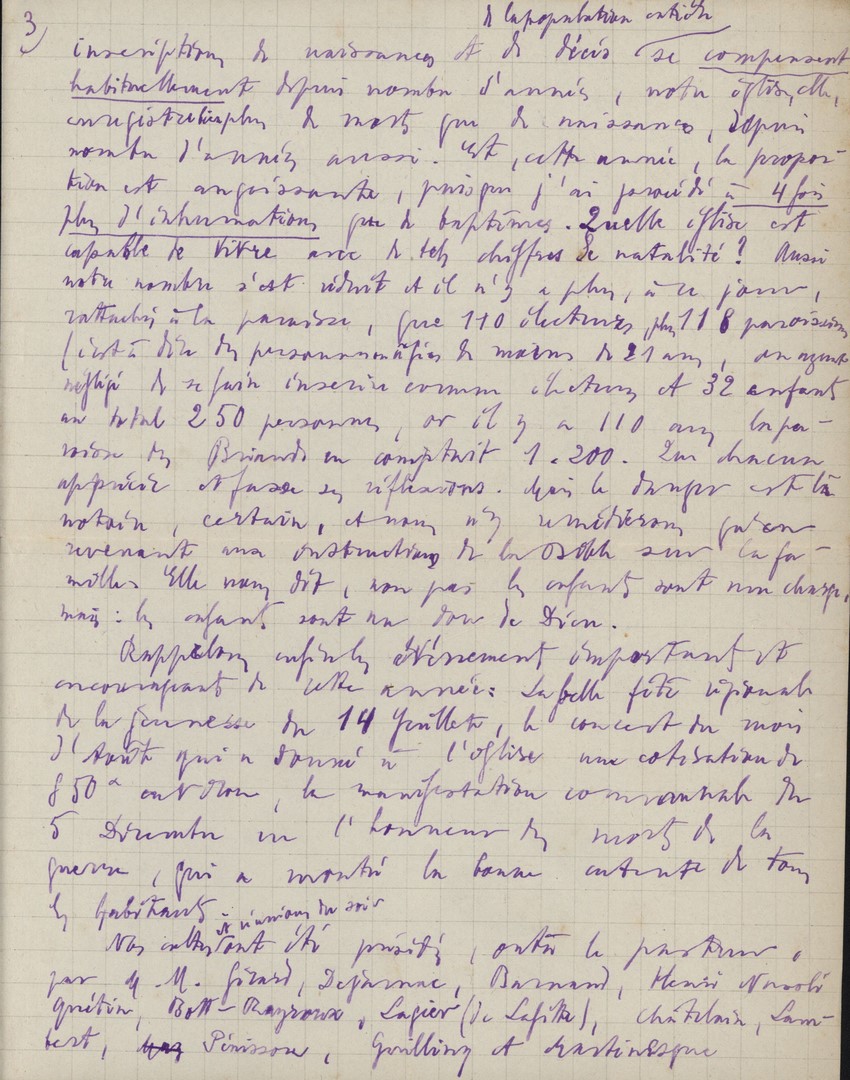 3)
de la population entière
inscriptions de naissances et de décès se compensent
habituellement depuis nombre d'années, notre église, elle,
enregistre plus de morts que de naissances, depuis
nombre d'années aussi. Et, cette année, la propor-
tion est angoissante, puisque j'ai procédé à 4 fois
plus d'inhumations que de baptêmes. Quelle église est
capable de vivre avec de tels chiffres de natalité? Aussi
notre nombre s'est réduit et il n'y a plus, à ce jour,
rattachés à la paroisse, que 110 électeurs, plus 118 paroissiens
(c'est à dire des personnes âgées de moins de 21 ans, ou ayant
négligé de se faire inscrire comme électeurs et 32 enfants
au total 250 personnes, or il y a 110 ans la pa-
roisse des en comptait 1.200. Que chacun
apprécie et fasse ses réflexions. Mais le danger est là
notoire, certain, et nous n'y remédierons qu'en
revenant aux instructions de la Bible sur la fa-
mille. Elle nous dit, non pas les enfants sont une charge,
mais : les enfants sont un don de Dieu.
Rappelons enfin les événements importants et
encourageants de cette année: La belle fête régionale
de la jeunesse du 14 Juillet, le concert du mois
d'Août qui a donné à l'église une cotisation de
850 , la manifestation communale du
5 Décembre en l'honneur des morts de la
guerre, qui a montré la bonne entente de tous
les habitants
et réunions du soir
Nos cultes ont été présidés, outre le pasteur,
par M. M. Girard, Dejarnac, Barnaud, Henri
, Bott-Reyroux, Lagier (de Lafitte), Châtelain, Lam-
bert, Pénissou, et